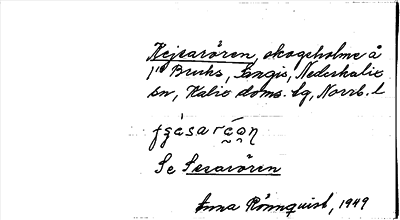 Kejsarören, skogsholme å
1/8 Bruks, Sangis, Nederkalix
sn, Kalix doms. lg, Norrb. l
Se Sesarören
Anna Rönnquist, 1949